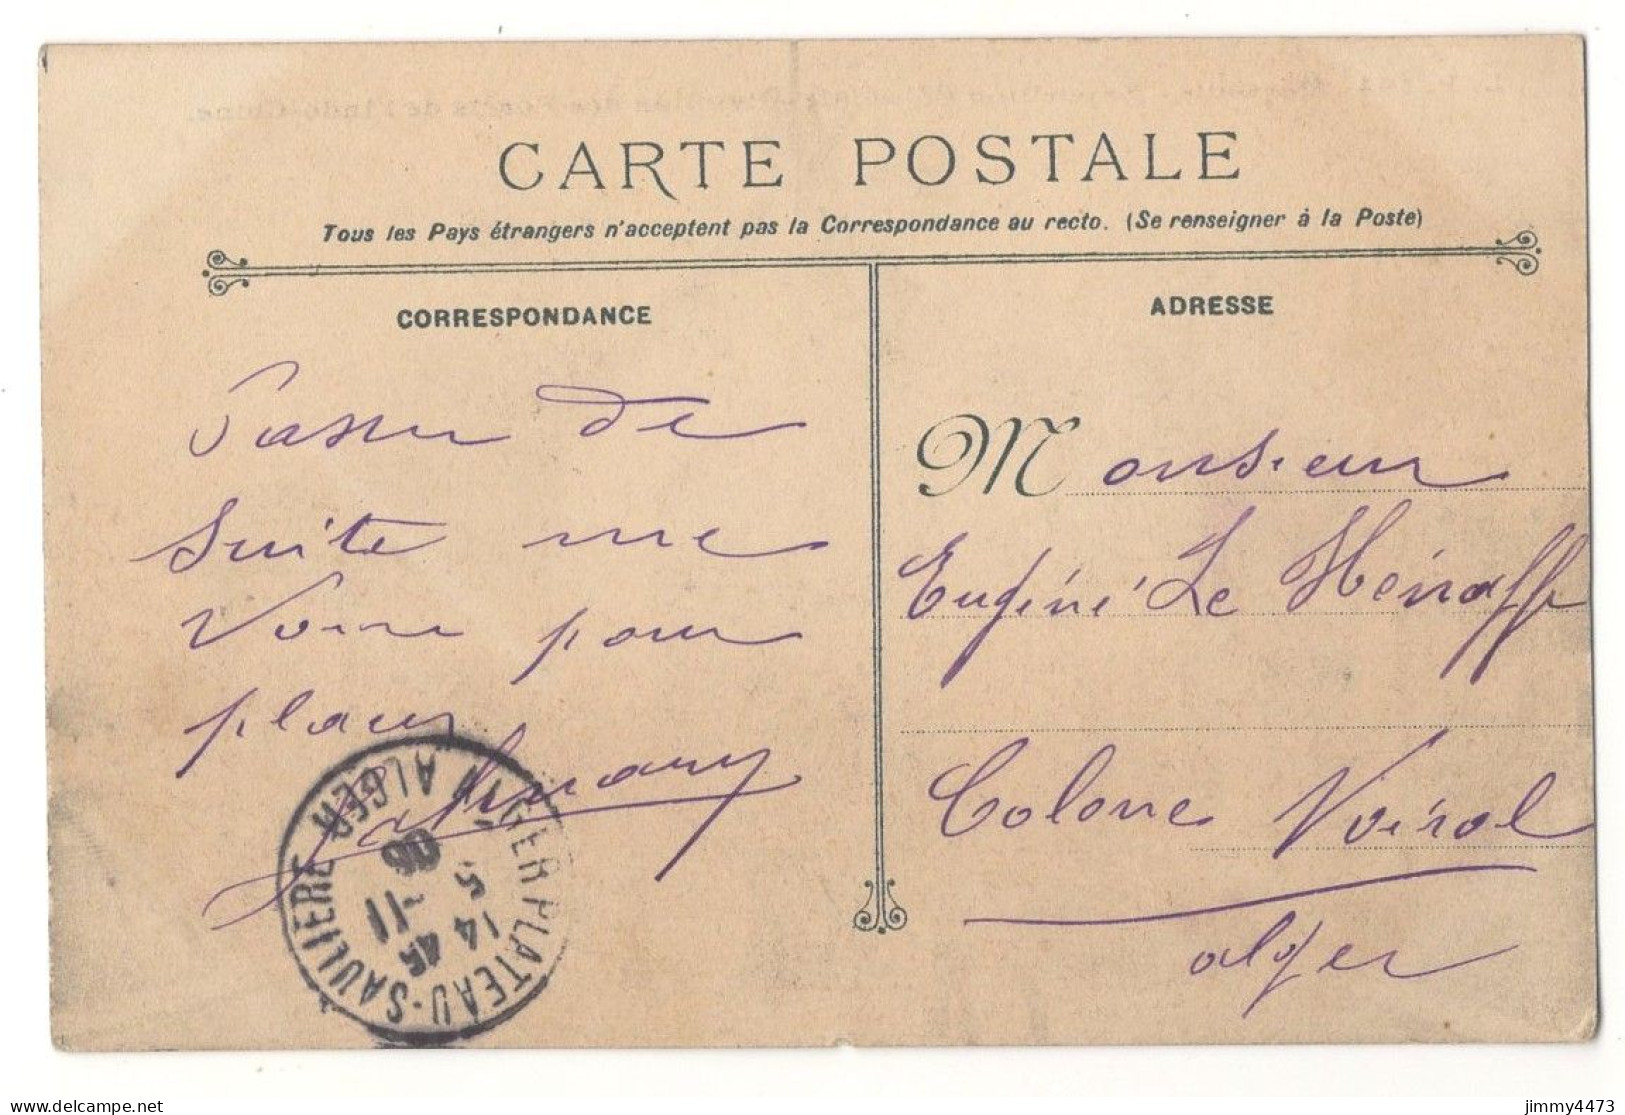 CARTE POSTALE
Tous les Pays étrangers n'acceptent pas la Correspondance au recto. (Se renseigner à la Poste)
CORRESPONDANCE
Passer de
suite me
voir pour
plans
ADRESSE
Monsieur
Eugène Le Hénaff
Colone Voirol
alger
ALGER PLATEAU-SAULIÈRE ALGER
14 45
5 -11
06
jimmy4473